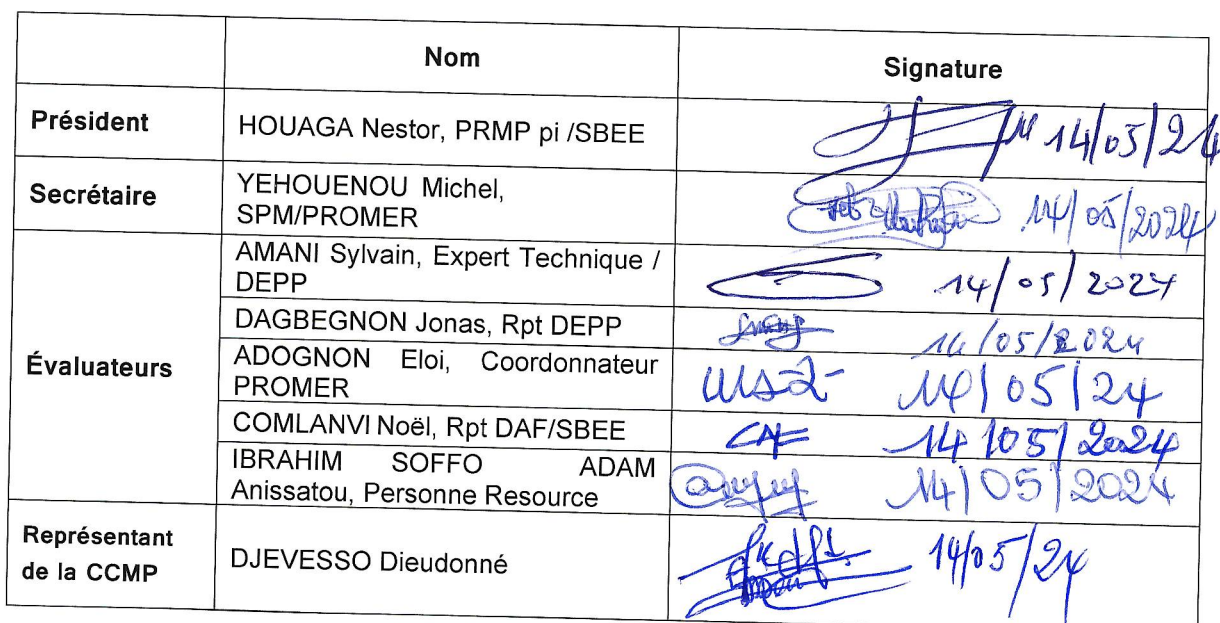 Nom
Signature
Président
HOUAGA Nestor, PRMP pi /SBEE
14/05/24
Secrétaire
YEHOUENOU Michel,
SPM/PROMER
14/05/2024
Évaluateurs
AMANI Sylvain, Expert Technique /
DEPP
14/05/2024
DAGBEGNON Jonas, Rpt DEPP
14/05/2024
ADOGNON Eloi, Coordonnateur
PROMER
14/05/24
COMLANVI Noël, Rpt DAF/SBEE
14/05/2024
IBRAHIM SOFFO ADAM
Anissatou, Personne Resource
14/05/2024
Représentant
de la CCMP
DJEVESSO Dieudonné
14/05/24